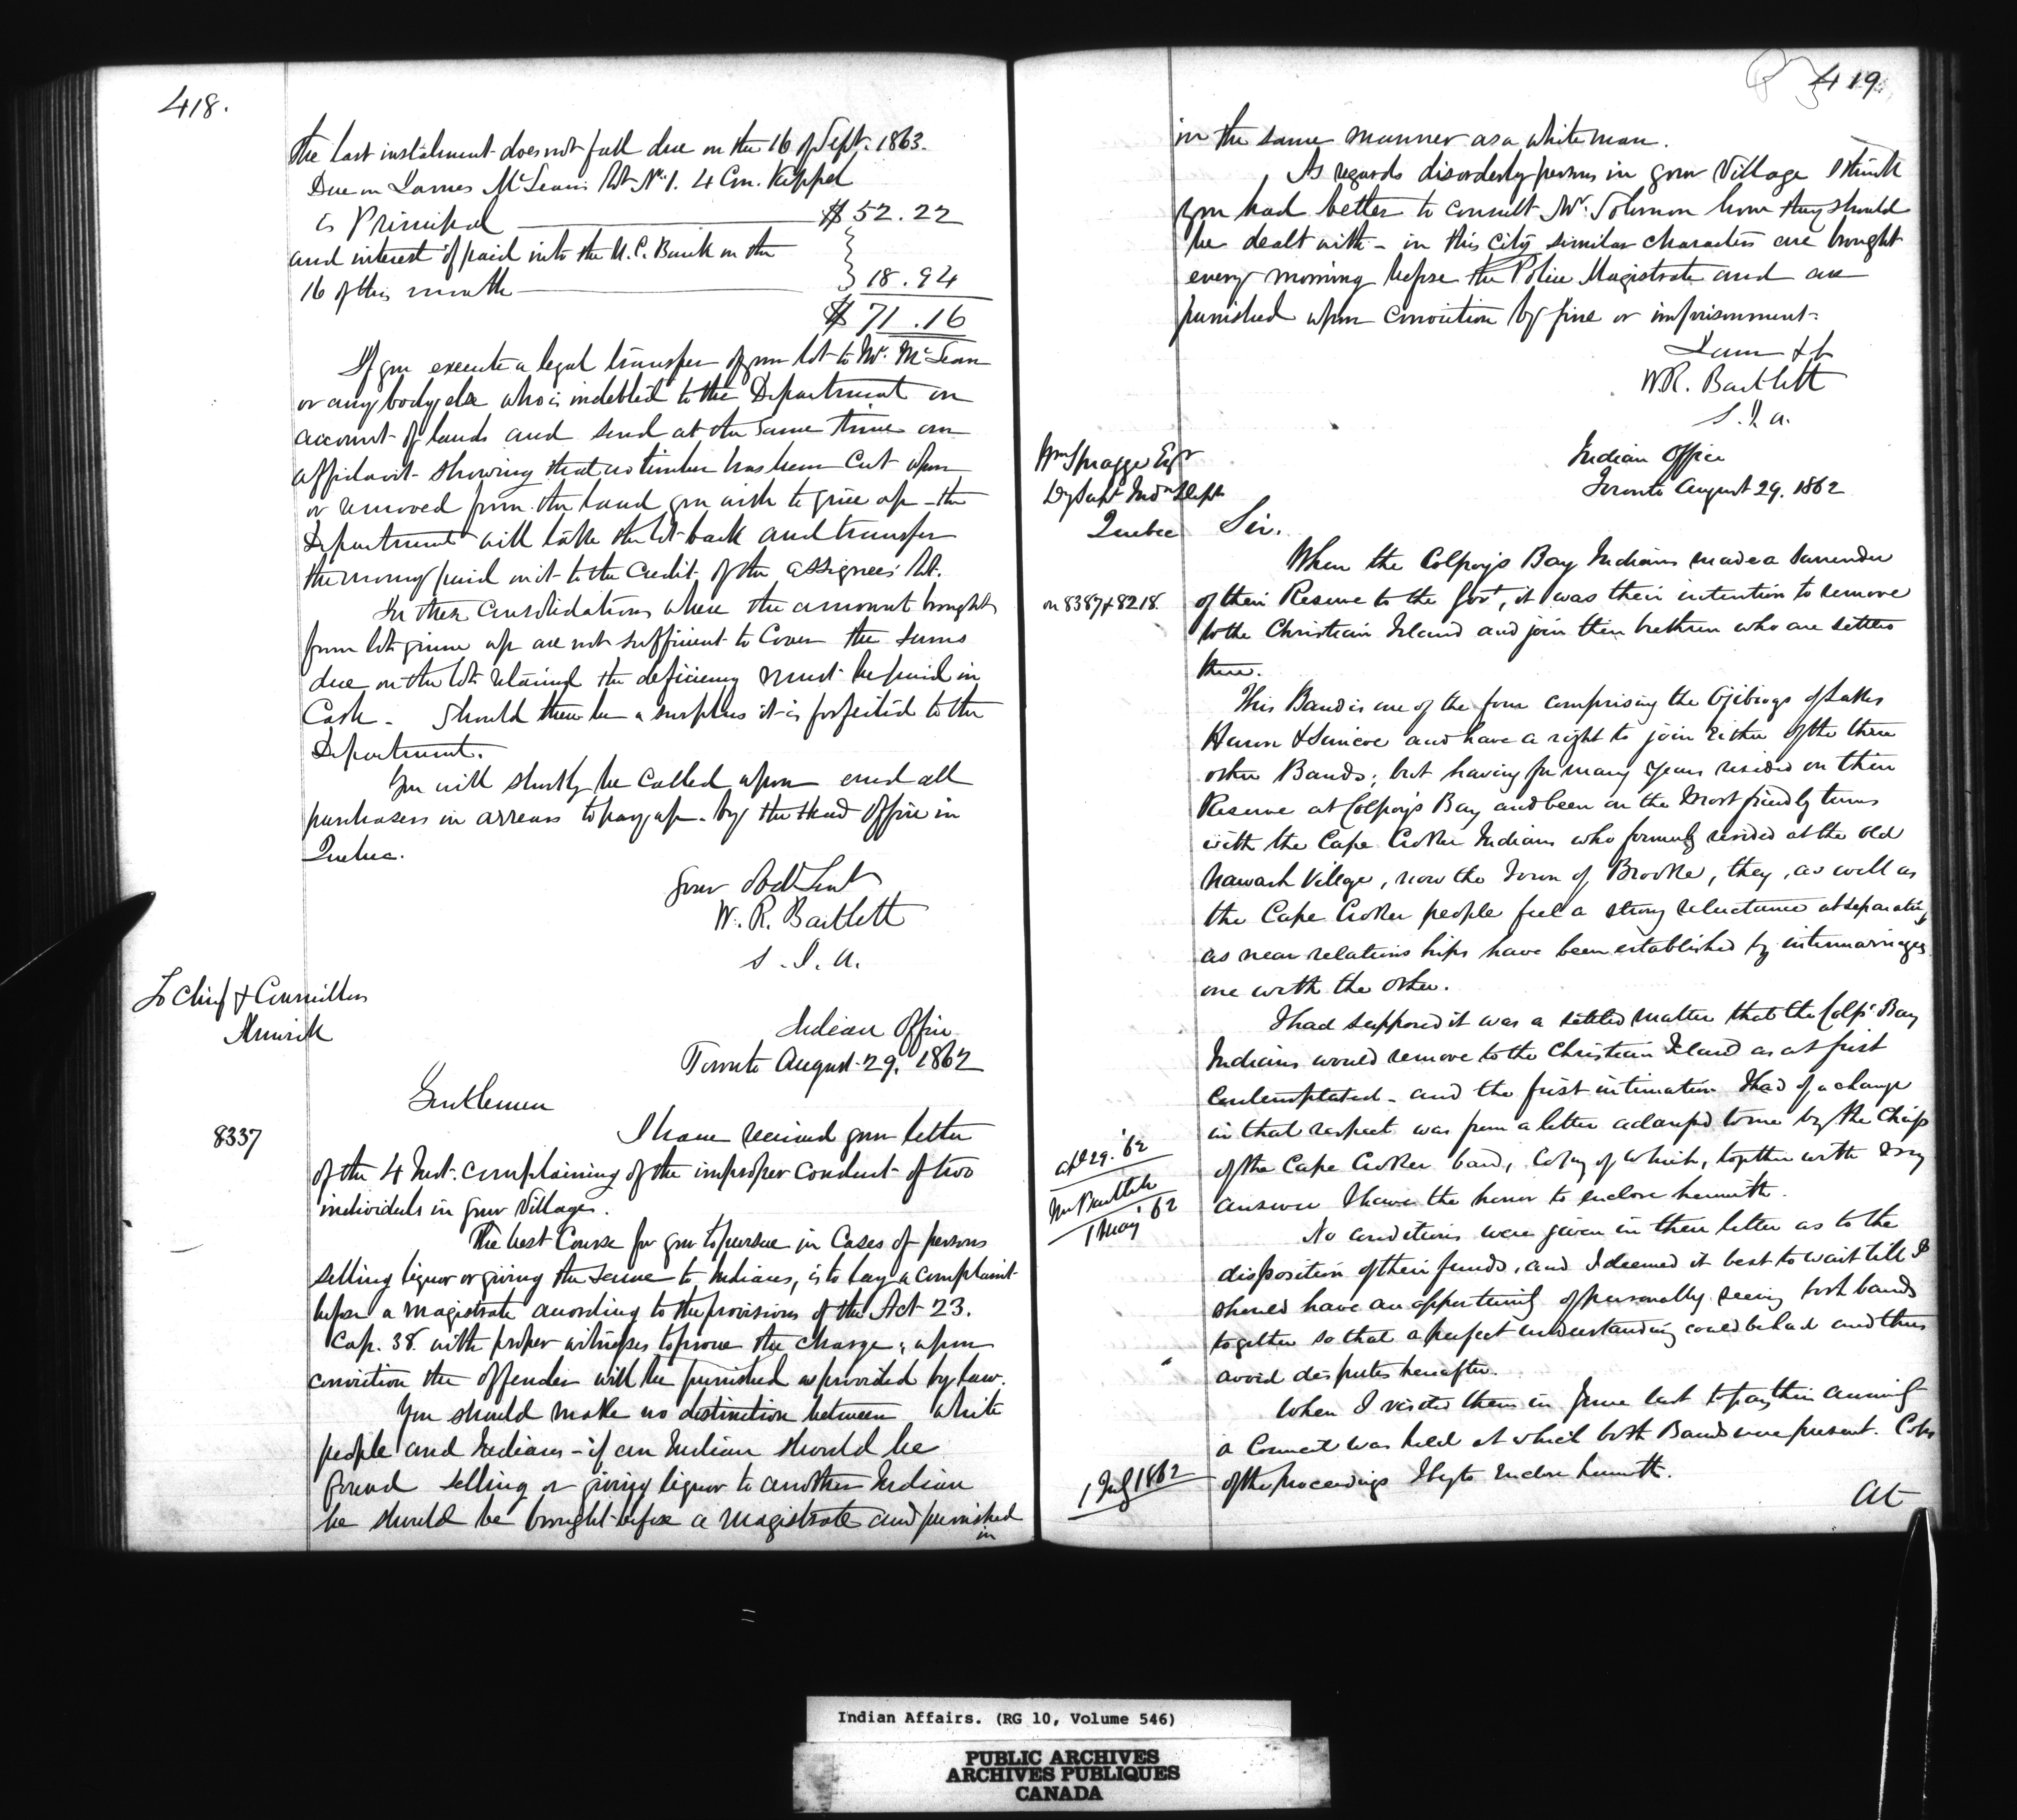 418.
The last instalment does not fall due on the 16 of Sept. 1863.
Due on James McLean's Lot No. 1. 4 Con. Keppel
is Principal $52.22
and interest if paid into the U.C. Bank on the
16 of this month 18.94
$71.16
If you execute a legal transfer of your lot to Mr. McLean
or any body else who is indebted to the Department on
account of lands and send at the same time an
affidavit showing that no timber has been cut upon
or removed from the land you wish to give up - the
Department will take the lot back and transfer
the money paid on it to the credit of the assignees' lot.
In these consolidations where the amount brought
from lots given up are not sufficient to cover the sums
due on the lots retained the deficiency must be paid in
Cash - Should there be a surplus it is forfeited to the
Department.
You will shortly be called upon and all
purchasers in arrears to pay up - by the Head Office in
Quebec.
Your Obdt Sert
W. R. Bartlett
S. I. A.
To Chief & Councillors
Alnwick
Indian Office
Toronto August 29, 1862
Gentlemen
8337
I have received your letter
of the 4 Inst. complaining of the improper conduct of two
individuls in your Villages.
The best Course for you to pursue in Cases of persons
selling liquor or giving the same to Indians, is to lay a complaint
before a magistrate according to the provisions of the Act 23.
Cap. 38 with proper witnesses to prove the charge; upon
conviction the offender will be punished as provided by law.
You should make no distinction between white
people and Indians - if an Indian should be
found selling or giving liquor to another Indian
he should be brought before a magistrate and punished
in
419
in the same manner as a white man.
As regards disorderly persons in your Village I think
you had better to consult Mr. Solomon how they should
be dealt with - in this City similar characters are brought
every morning before the Police Magistrate and are
punished upon conviction by fine or imprisonment.
I am &c
W.R. Bartlett
S. I. A.
Wm Spragge Esqr
Dy Supt Indn Dept
Quebec
Indian Office
Toronto August 29. 1862
Sir.
on 8387 & 8218
When the Colpoy's Bay Indians made a surrender
of their Reserve to the Govt, it was their intention to remove
to the Christian Island and join their brethren who are settled
there.
This Band is one of the four comprising the Ojibways of Lakes
Huron & Simcoe and have a right to join either of the three
other Bands; but having for many years resided on their
Reserve at Colpoy's Bay and been on the most friendly terms
with the Cape Croker Indians who formerly resided at the old
Nawash Village, now the Town of Brooke, they, as well as
the Cape Croker people feel a strong reluctance at separating
as near relationships have been established by intermarriages
one with the other.
I had supposed it was a settled matter that the Colps Bay
Indians would remove to the Christian Island as at first
Contemplated - and the first intimation I had of a change
in that respect was from a letter addressed to me by the Chiefs
Apl 29. '62
of the Cape Croker band, Copy of which, together with my
Mr Bartlett
1 May '62
answer I have the honor to enclose herewith.
No conditions were given in their letter as to the
disposition of their funds, and I deemed it best to wait till I
should have an opportunity of personally seeing both bands
together so that a perfect understanding could be had and thus
avoid disputes hereafter.
When I visited them in June last to pay their annuity
a Council was held at which both Bands were present. Copy
1 July 1862
of the proceedings I beg to enclose herewith.
At
Indian Affairs. (RG 10, Volume 546)
PUBLIC ARCHIVES
ARCHIVES PUBLIQUES
CANADA